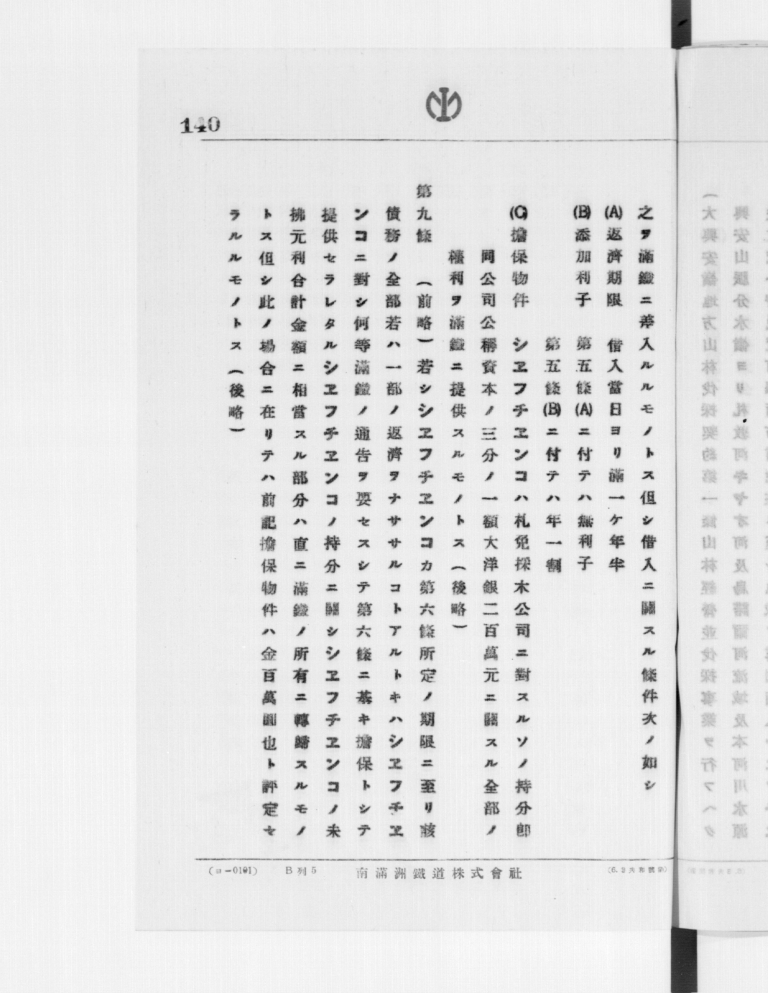 140
之ヲ滿鐵ニ差入ルルモノトス但シ借入ニ關スル條件次ノ如シ
(A)返濟期限　借入當日ヨリ滿一ケ年半
(B)添加利子　第五條(A)ニ付テハ無利子
第五條(B)ニ付テハ年一割
(C)擔保物件　シヱフチヱンコハ札免採木公司ニ對スルソノ持分卽
同公司公稱資本ノ三分ノ一額大洋銀二百萬元ニ關スル全部ノ
權利ヲ滿鐵ニ提供スルモノトス(後略)
第九條　(前略)若シシヱフチヱンコカ第六條所定ノ期限ニ至リ該
債務ノ全部若ハ一部ノ返濟ヲナササルコトアルトキハシヱフチヱ
ンコニ對シ何等滿鐵ノ通告ヲ要セスシテ第六條ニ基キ擔保トシテ
提供セラレタルシヱフチヱンコノ持分ニ關シシヱフチヱンコノ未
拂元利合計金額ニ相當スル部分ハ直ニ滿鐵ノ所有ニ轉歸スルモノ
トス但シ此ノ場合ニ在リテハ前記擔保物件ハ金百萬圓也ト評定セ
ラルルモノトス(後略)
(ヨ-0191)　B列5　南滿洲鐵道株式會社